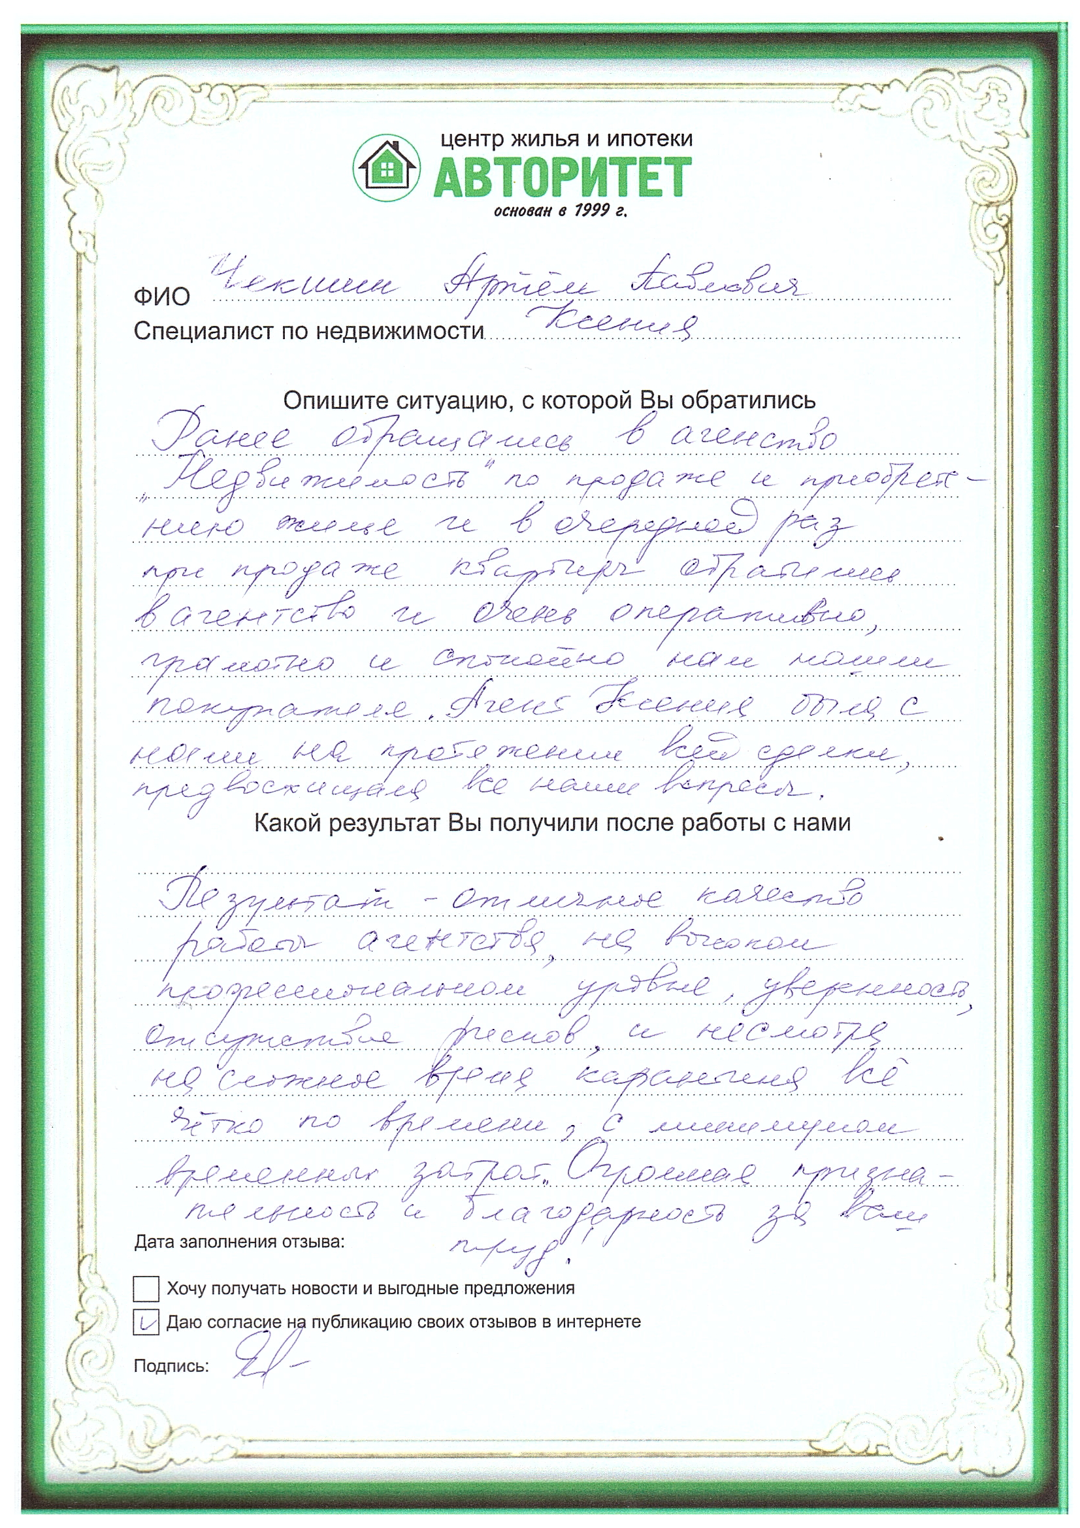 центр жилья и ипотеки
АВТОРИТЕТ
основан в 1999 г.
ФИО Чекшин Артём Павлович
Специалист по недвижимости Ксения
Опишите ситуацию, с которой Вы обратились
Ранее обращались в агенство
„Недвижимость" по продаже и приобрете-
нию жилье и в очередной раз
при продаже квартиры обратились
в агентство и очень оперативно,
грамотно и спокойно нам нашли
покупателя. Агент Ксения была с
нами на протяжении всей сделки,
предвосхищала все наши вопросы.
Какой результат Вы получили после работы с нами
Результат - отличное качество
работы агентства, на высоком
профессиональном уровне, уверенность,
отсутствие рисков, и несмотря
на сложное время карантина всё
чётко по времени, с минимумом
временных затрат. Огромная призна-
тельность и благодарность за Ваш
труд!
Дата заполнения отзыва:
Хочу получать новости и выгодные предложения
Даю согласие на публикацию своих отзывов в интернете
Подпись: